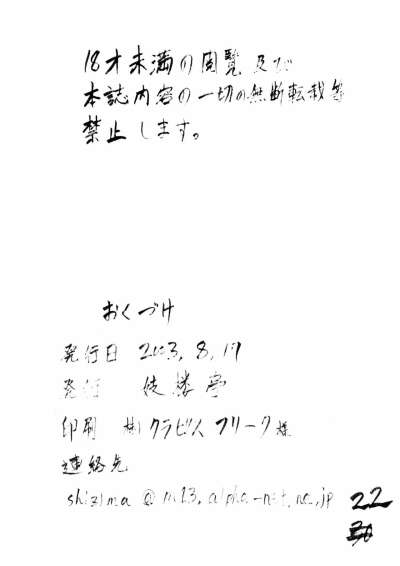 18才未満の閲覧及び
本誌内容の一切の無断転載等
禁止します。
おくづけ
発行日 2003.8.17
発行 楼亭
印刷 ㈱クラビズフリーク様
連絡先
shizima@m23.alpha-net.ne.jp
22